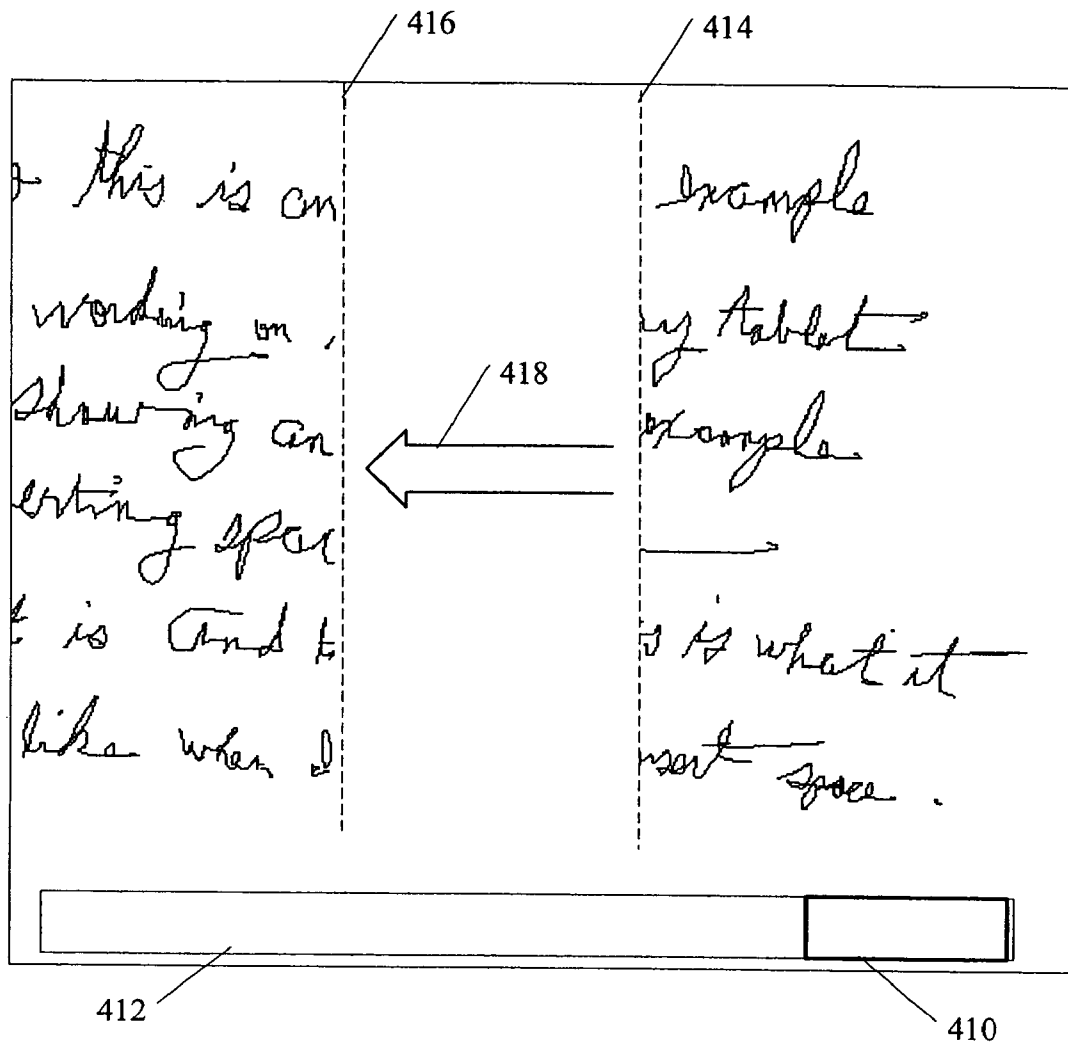 416 414
this is an example
working on tablet
showing an example
418
erting spac
is and t is what it
like when I nsert space.
412 410